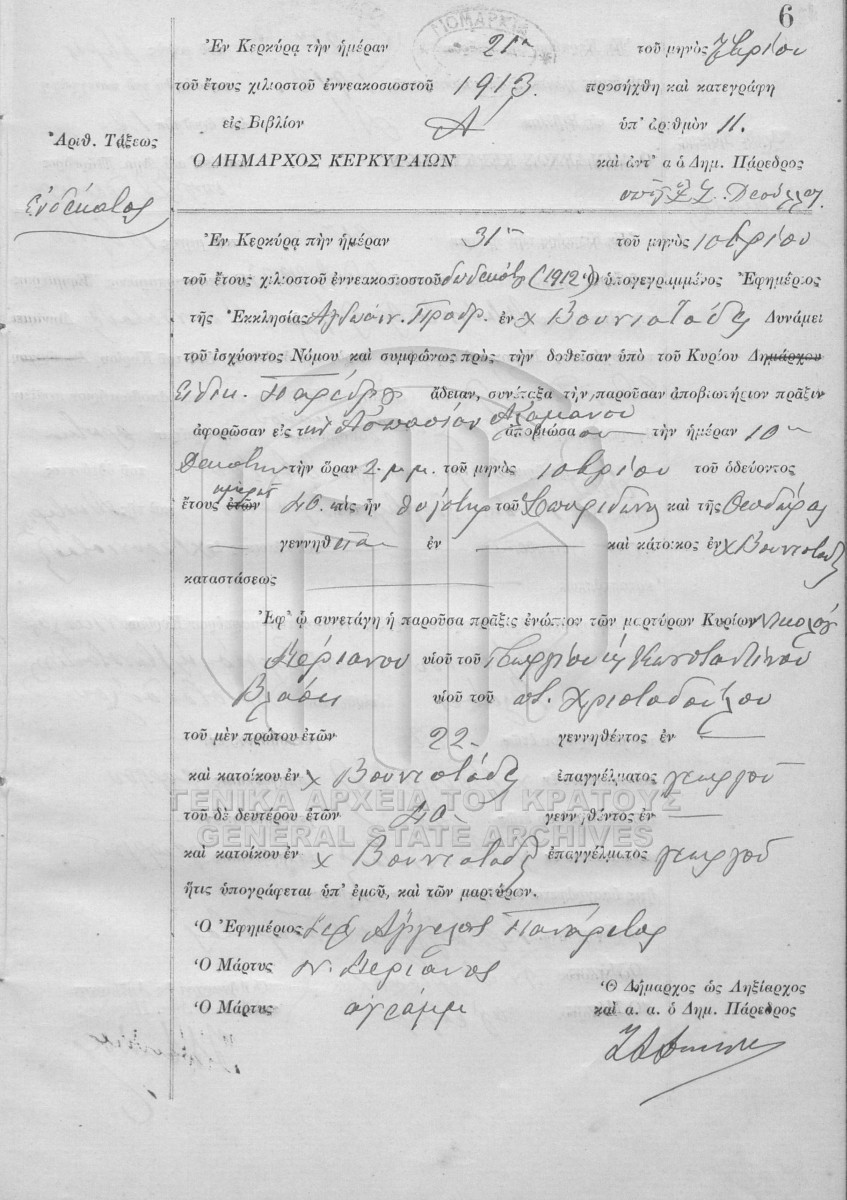 6
Ἐν Κερκύρᾳ τὴν ἡμέραν 21ην τοῦ μηνὸς
τοῦ ἔτους χιλιοστοῦ ἐννεακοσιοστοῦ 1913. προσήχθη καὶ κατεγράφη
εἰς Βιβλίον Α ὑπ' ἀριθμὸν 11.
Ἀριθ. Τάξεως
Ο ΔΗΜΑΡΧΟΣ ΚΕΡΚΥΡΑΙΩΝ καὶ ἀντ' α ὁ Δημ. Πάρεδρος
Ἑνδέκατος
Ἐν Κερκύρᾳ πὴν ἡμέραν 31ην τοῦ μηνὸς 10βρίου
τοῦ ἔτους χιλιοστοῦ ἐννεακοσιοστοῦ δωδεκάτου (1912) Ὁ ὑπογεγραμμένος Ἐφημέριος
τῆς Ἐκκλησίας Ἁγ Ἰωάν. Προδρ. ἐν χ Βουνιατάδες Δυνάμει
τοῦ ἰσχύοντος Νόμου καὶ συμφώνως πρὸς τὴν δοθεῖσαν ὑπὸ τοῦ Κυρίου Δημάρχου
Εἰδικ. Παρέδρου ἄδειαν, συνέταξα τὴν παροῦσαν ἀποβιωτήριον πρᾶξιν
ἀφορῶσαν εἰς τὴν Ἀσπασίαν ἀποβιώσασαν τὴν ἡμέραν 10ην
Δεκάτην τὴν ὥραν 2 μ.μ. τοῦ μηνὸς 10βρίου τοῦ ὁδεύοντος
ἔτους ἐτῶν 40 τις ἦν θυγάτηρ τοῦ Σπυρίδωνος καὶ τῆς Θεοδώρας
γεννηθεῖσα ἐν καὶ κάτοικος ἐν χ Βουνιατάδες
καταστάσεως
Ἐφ' ᾧ συνετάγη ἡ παροῦσα πρᾶξις ἐνώπιον τῶν μαρτύρων Κυρίων Νικολάου
Μεριανου υἱοῦ τοῦ Γεωργίου καὶ Κωνσταντίνου
Βλάσση υἱοῦ τοῦ ποτ. Χριστοδούλου
τοῦ μὲν πρώτου ἐτῶν 22 γεννηθέντος ἐν
καὶ κατοίκου ἐν χ Βουνιατάδες ἐπαγγέλματος γεωργοῦ
ΓΕΝΙΚΑ ΑΡΧΕΙΑ ΤΟΥ ΚΡΑΤΟΥΣ
τοῦ δὲ δευτέρου ἐτῶν 40 γεννηθέντος ἐν
GENERAL STATE ARCHIVES
καὶ κατοίκου ἐν χ Βουνιατάδες ἐπαγγέλματος γεωργοῦ
ἥτις ὑπογράφεται ὑπ' ἐμοῦ, καὶ τῶν μαρτύρων.
Ὁ Ἐφημέριος Ἱερ Ἄγγελος Πανάρετος
Ὁ Μάρτυς Ν. Μεριανος
Ὁ Δήμαρχος ὡς Ληξίαρχος
Ὁ Μάρτυς ἀγράμμ καὶ α. α. ὁ Δημ. Πάρεδρος